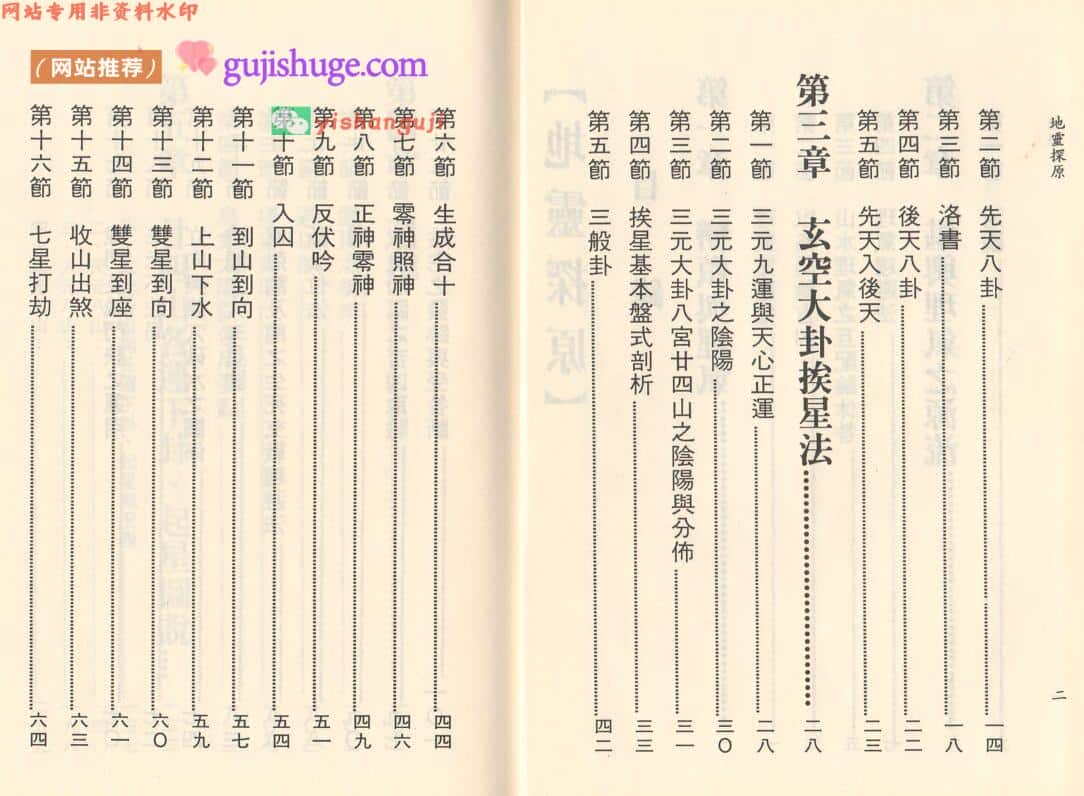 网站专用非资料水印
（网站推荐）
gujishuge.com
yishanguji
地靈探原
二
第二節 先天八卦 一四
第三節 洛書 一八
第四節 後天八卦 二二
第五節 先天入後天 二三
第三章 玄空大卦挨星法 二八
第一節 三元九運與天心正運 二八
第二節 三元大卦之陰陽 三〇
第三節 三元大卦八宮廿四山之陰陽與分佈 三一
第四節 挨星基本盤式剖析 三三
第五節 三般卦 四二
第六節 生成合十 四四
第七節 零神照神 四六
第八節 正神零神 四九
第九節 反伏吟 五一
第十節 入囚 五四
第十一節 到山到向 五七
第十二節 上山下水 五九
第十三節 雙星到向 六〇
第十四節 雙星到座 六一
第十五節 收山出煞 六三
第十六節 七星打劫 六四